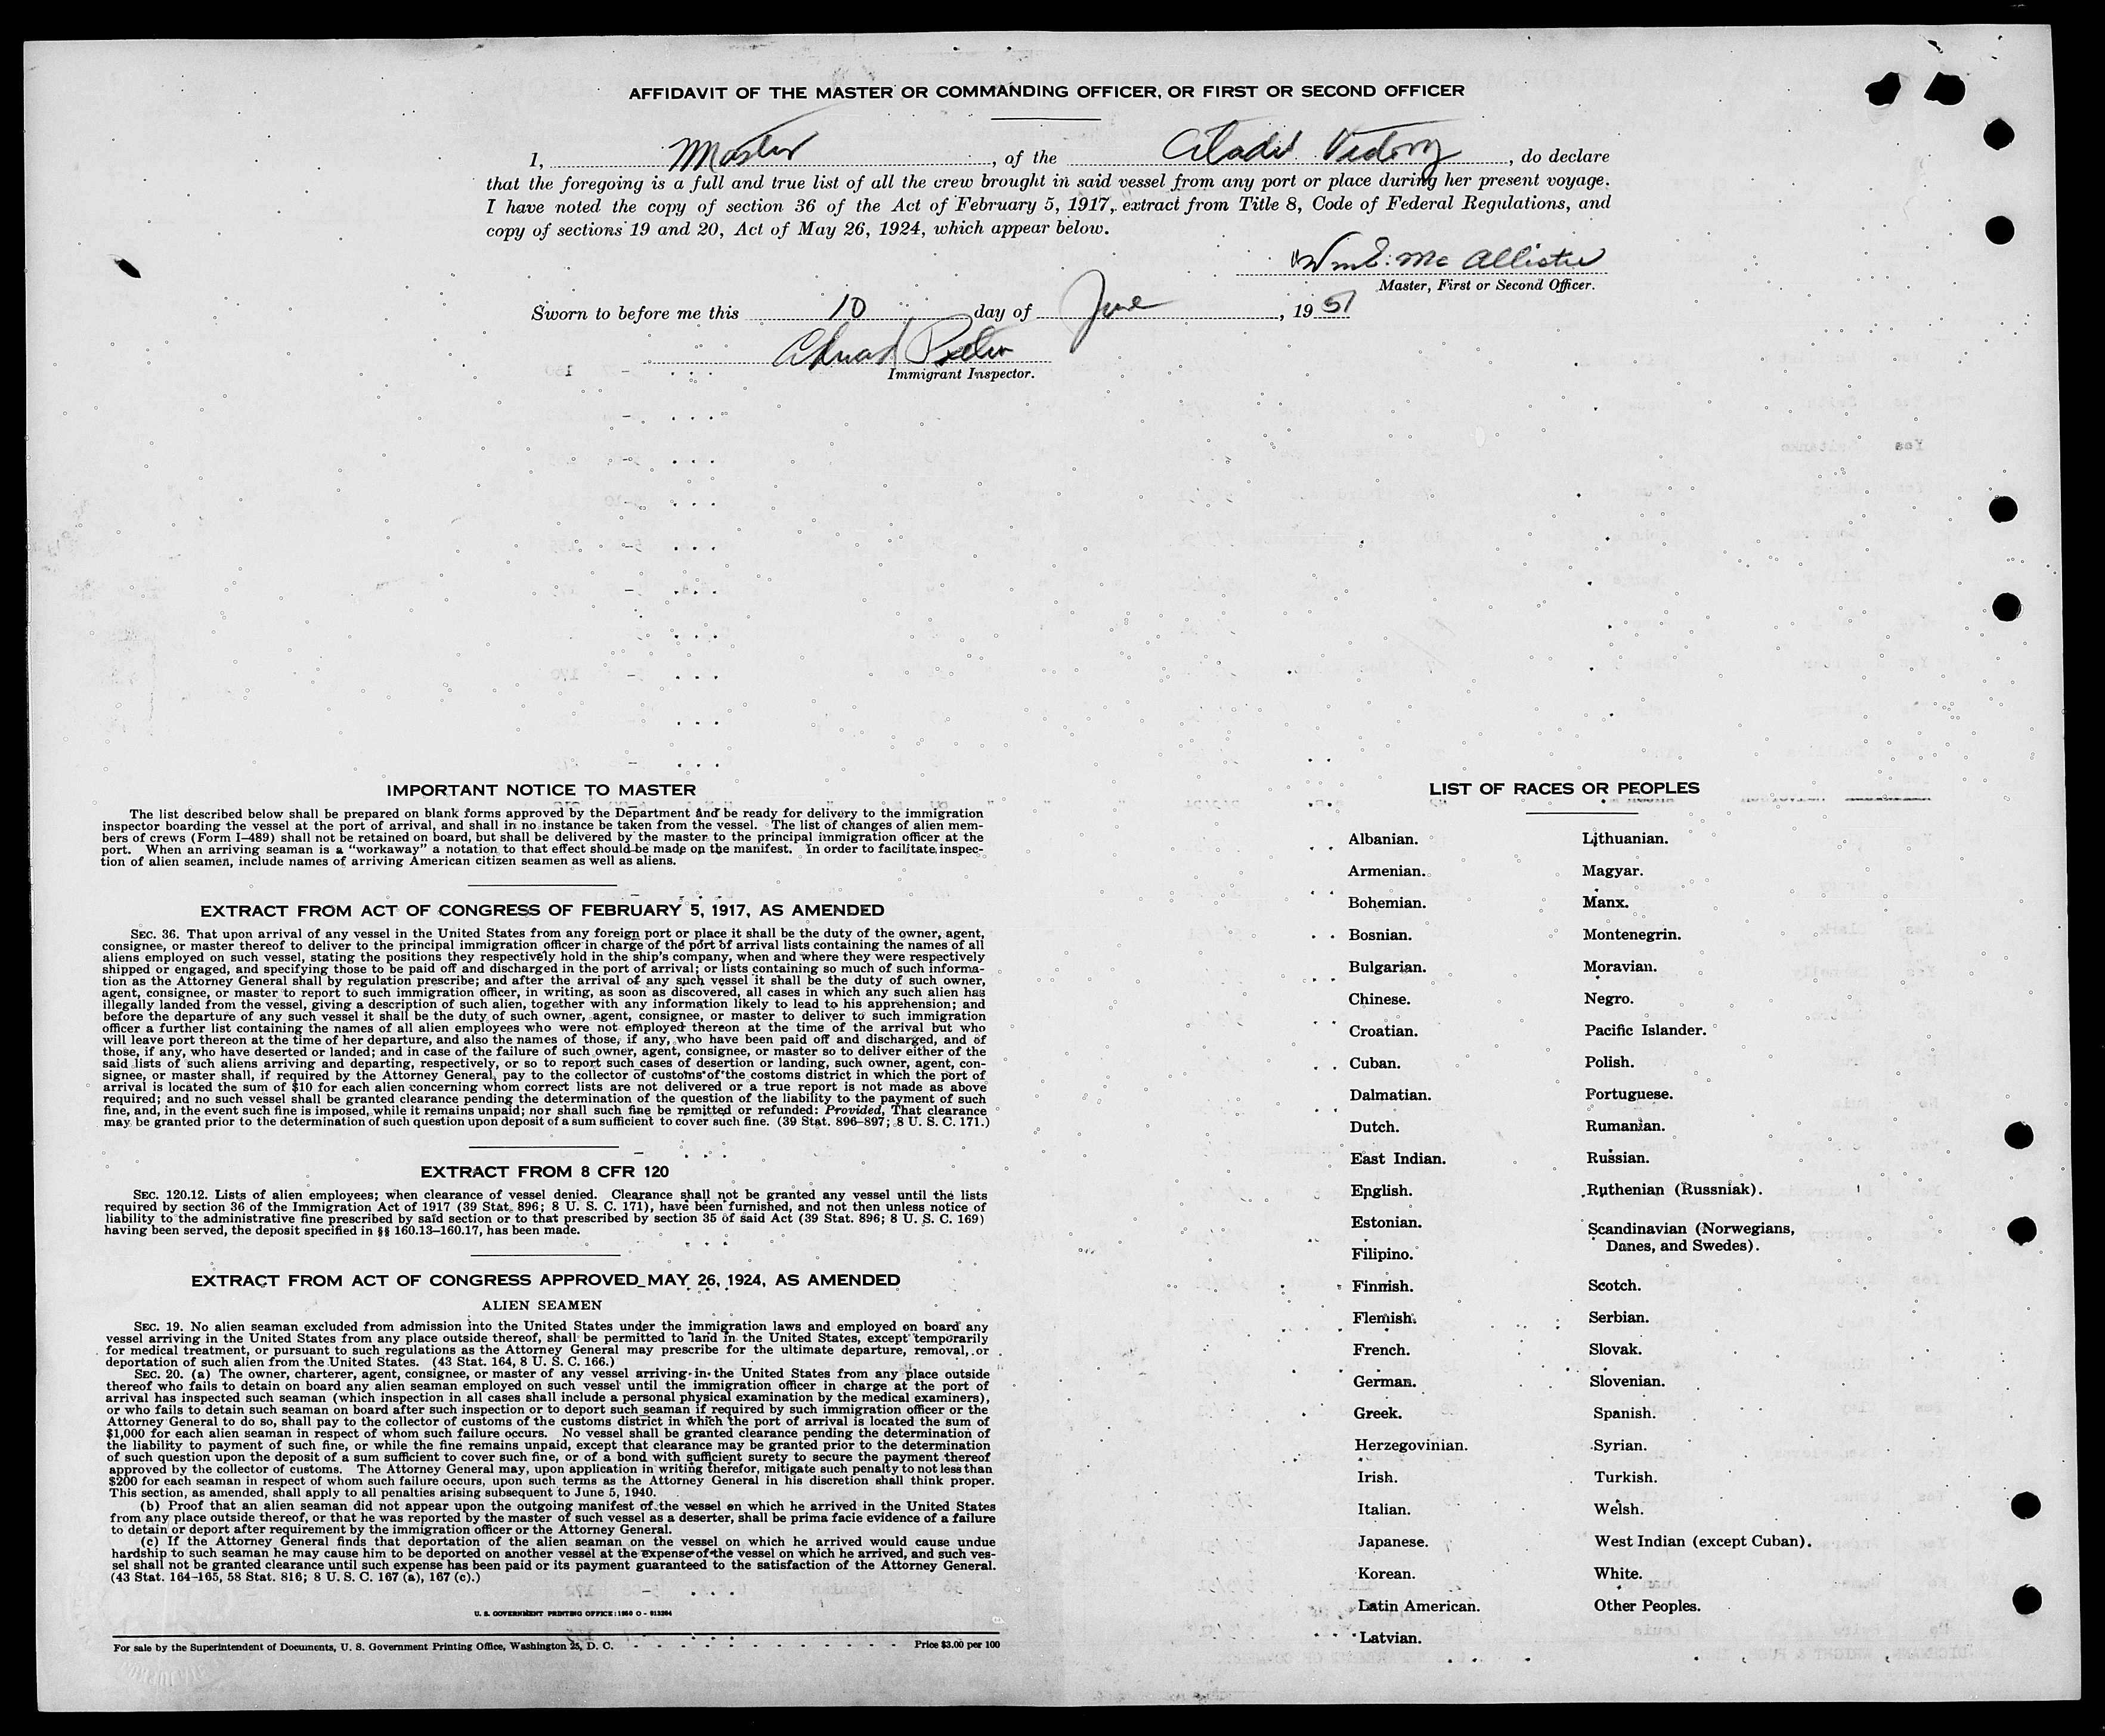 AFFIDAVIT OF THE MASTER OR COMMANDING OFFICER, OR FIRST OR SECOND OFFICER
I, Master, of the Citadel Victory, do declare
that the foregoing is a full and true list of all the crew brought in said vessel from any port or place during her present voyage.
I have noted the copy of section 36 of the Act of February 5, 1917, extract from Title 8, Code of Federal Regulations, and
copy of sections 19 and 20, Act of May 26, 1924, which appear below.
Wm E. Mc Allister
Master, First or Second Officer.
Sworn to before me this 10 day of June, 1951
Immigrant Inspector.
IMPORTANT NOTICE TO MASTER
The list described below shall be prepared on blank forms approved by the Department and be ready for delivery to the immigration
inspector boarding the vessel at the port of arrival, and shall in no instance be taken from the vessel. The list of changes of alien mem-
bers of crews (Form I-489) shall not be retained on board, but shall be delivered by the master to the principal immigration officer at the
port. When an arriving seaman is a "workaway" a notation to that effect should be made on the manifest. In order to facilitate inspec-
tion of alien seamen, include names of arriving American citizen seamen as well as aliens.
EXTRACT FROM ACT OF CONGRESS OF FEBRUARY 5, 1917, AS AMENDED
SEC. 36. That upon arrival of any vessel in the United States from any foreign port or place it shall be the duty of the owner, agent,
consignee, or master thereof to deliver to the principal immigration officer in charge of the port of arrival lists containing the names of all
aliens employed on such vessel, stating the positions they respectively hold in the ship's company, when and where they were respectively
shipped or engaged, and specifying those to be paid off and discharged in the port of arrival; or lists containing so much of such informa-
tion as the Attorney General shall by regulation prescribe; and after the arrival of any such vessel it shall be the duty of such owner,
agent, consignee, or master to report to such immigration officer, in writing, as soon as discovered, all cases in which any such alien has
illegally landed from the vessel, giving a description of such alien, together with any information likely to lead to his apprehension; and
before the departure of any such vessel it shall be the duty of such owner, agent, consignee, or master to deliver to such immigration
officer a further list containing the names of all alien employees who were not employed thereon at the time of the arrival but who
will leave port thereon at the time of her departure, and also the names of those, if any, who have been paid off and discharged, and of
those, if any, who have deserted or landed; and in case of the failure of such owner, agent, consignee, or master so to deliver either of the
said lists of such aliens arriving and departing, respectively, or so to report such cases of desertion or landing, such owner, agent, con-
signee, or master shall, if required by the Attorney General, pay to the collector of customs of the customs district in which the port of
arrival is located the sum of $10 for each alien concerning whom correct lists are not delivered or a true report is not made as above
required; and no such vessel shall be granted clearance pending the determination of the question of the liability to the payment of such
fine, and, in the event such fine is imposed, while it remains unpaid; nor shall such fine be remitted or refunded: Provided, That clearance
may be granted prior to the determination of such question upon deposit of a sum sufficient to cover such fine. (39 Stat. 896-897; 8 U. S. C. 171.)
EXTRACT FROM 8 CFR 120
SEC. 120.12. Lists of alien employees; when clearance of vessel denied. Clearance shall not be granted any vessel until the lists
required by section 36 of the Immigration Act of 1917 (39 Stat. 896; 8 U. S. C. 171), have been furnished, and not then unless notice of
liability to the administrative fine prescribed by said section or to that prescribed by section 35 of said Act (39 Stat. 896; 8 U. S. C. 169)
having been served, the deposit specified in §§ 160.13-160.17, has been made.
EXTRACT FROM ACT OF CONGRESS APPROVED MAY 26, 1924, AS AMENDED
ALIEN SEAMEN
SEC. 19. No alien seaman excluded from admission into the United States under the immigration laws and employed on board any
vessel arriving in the United States from any place outside thereof, shall be permitted to land in the United States, except temporarily
for medical treatment, or pursuant to such regulations as the Attorney General may prescribe for the ultimate departure, removal, or
deportation of such alien from the United States. (43 Stat. 164, 8 U. S. C. 166.)
SEC. 20. (a) The owner, charterer, agent, consignee, or master of any vessel arriving in the United States from any place outside
thereof who fails to detain on board any alien seaman employed on such vessel until the immigration officer in charge at the port of
arrival has inspected such seaman (which inspection in all cases shall include a personal physical examination by the medical examiners),
or who fails to detain such seaman on board after such inspection or to deport such seaman if required by such immigration officer or the
Attorney General to do so, shall pay to the collector of customs of the customs district in which the port of arrival is located the sum of
$1,000 for each alien seaman in respect of whom such failure occurs. No vessel shall be granted clearance pending the determination of
the liability to payment of such fine, or while the fine remains unpaid, except that clearance may be granted prior to the determination
of such question upon the deposit of a sum sufficient to cover such fine, or of a bond with sufficient surety to secure the payment thereof
approved by the collector of customs. The Attorney General may, upon application in writing therefor, mitigate such penalty to not less than
$200 for each seaman in respect of whom such failure occurs, upon such terms as the Attorney General in his discretion shall think proper.
This section, as amended, shall apply to all penalties arising subsequent to June 5, 1940.
(b) Proof that an alien seaman did not appear upon the outgoing manifest of the vessel on which he arrived in the United States
from any place outside thereof, or that he was reported by the master of such vessel as a deserter, shall be prima facie evidence of a failure
to detain or deport after requirement by the immigration officer or the Attorney General.
(c) If the Attorney General finds that deportation of the alien seaman on the vessel on which he arrived would cause undue
hardship to such seaman he may cause him to be deported on another vessel at the expense of the vessel on which he arrived, and such ves-
sel shall not be granted clearance until such expense has been paid or its payment guaranteed to the satisfaction of the Attorney General.
(43 Stat. 164-165, 58 Stat. 816; 8 U. S. C. 167 (a), 167 (c).)
U. S. GOVERNMENT PRINTING OFFICE: 1950 O - 913394
For sale by the Superintendent of Documents, U. S. Government Printing Office, Washington 25, D. C. - - - - - - - - - - - - - Price $3.00 per 100
LIST OF RACES OR PEOPLES
Albanian.
Armenian.
Bohemian.
Bosnian.
Bulgarian.
Chinese.
Croatian.
Cuban.
Dalmatian.
Dutch.
East Indian.
English.
Estonian.
Filipino.
Finnish.
Flemish.
French.
German.
Greek.
Herzegovinian.
Irish.
Italian.
Japanese.
Korean.
Latin American.
Latvian.
Lithuanian.
Magyar.
Manx.
Montenegrin.
Moravian.
Negro.
Pacific Islander.
Polish.
Portuguese.
Rumanian.
Russian.
Ruthenian (Russniak).
Scandinavian (Norwegians,
Danes, and Swedes).
Scotch.
Serbian.
Slovak.
Slovenian.
Spanish.
Syrian.
Turkish.
Welsh.
West Indian (except Cuban).
White.
Other Peoples.